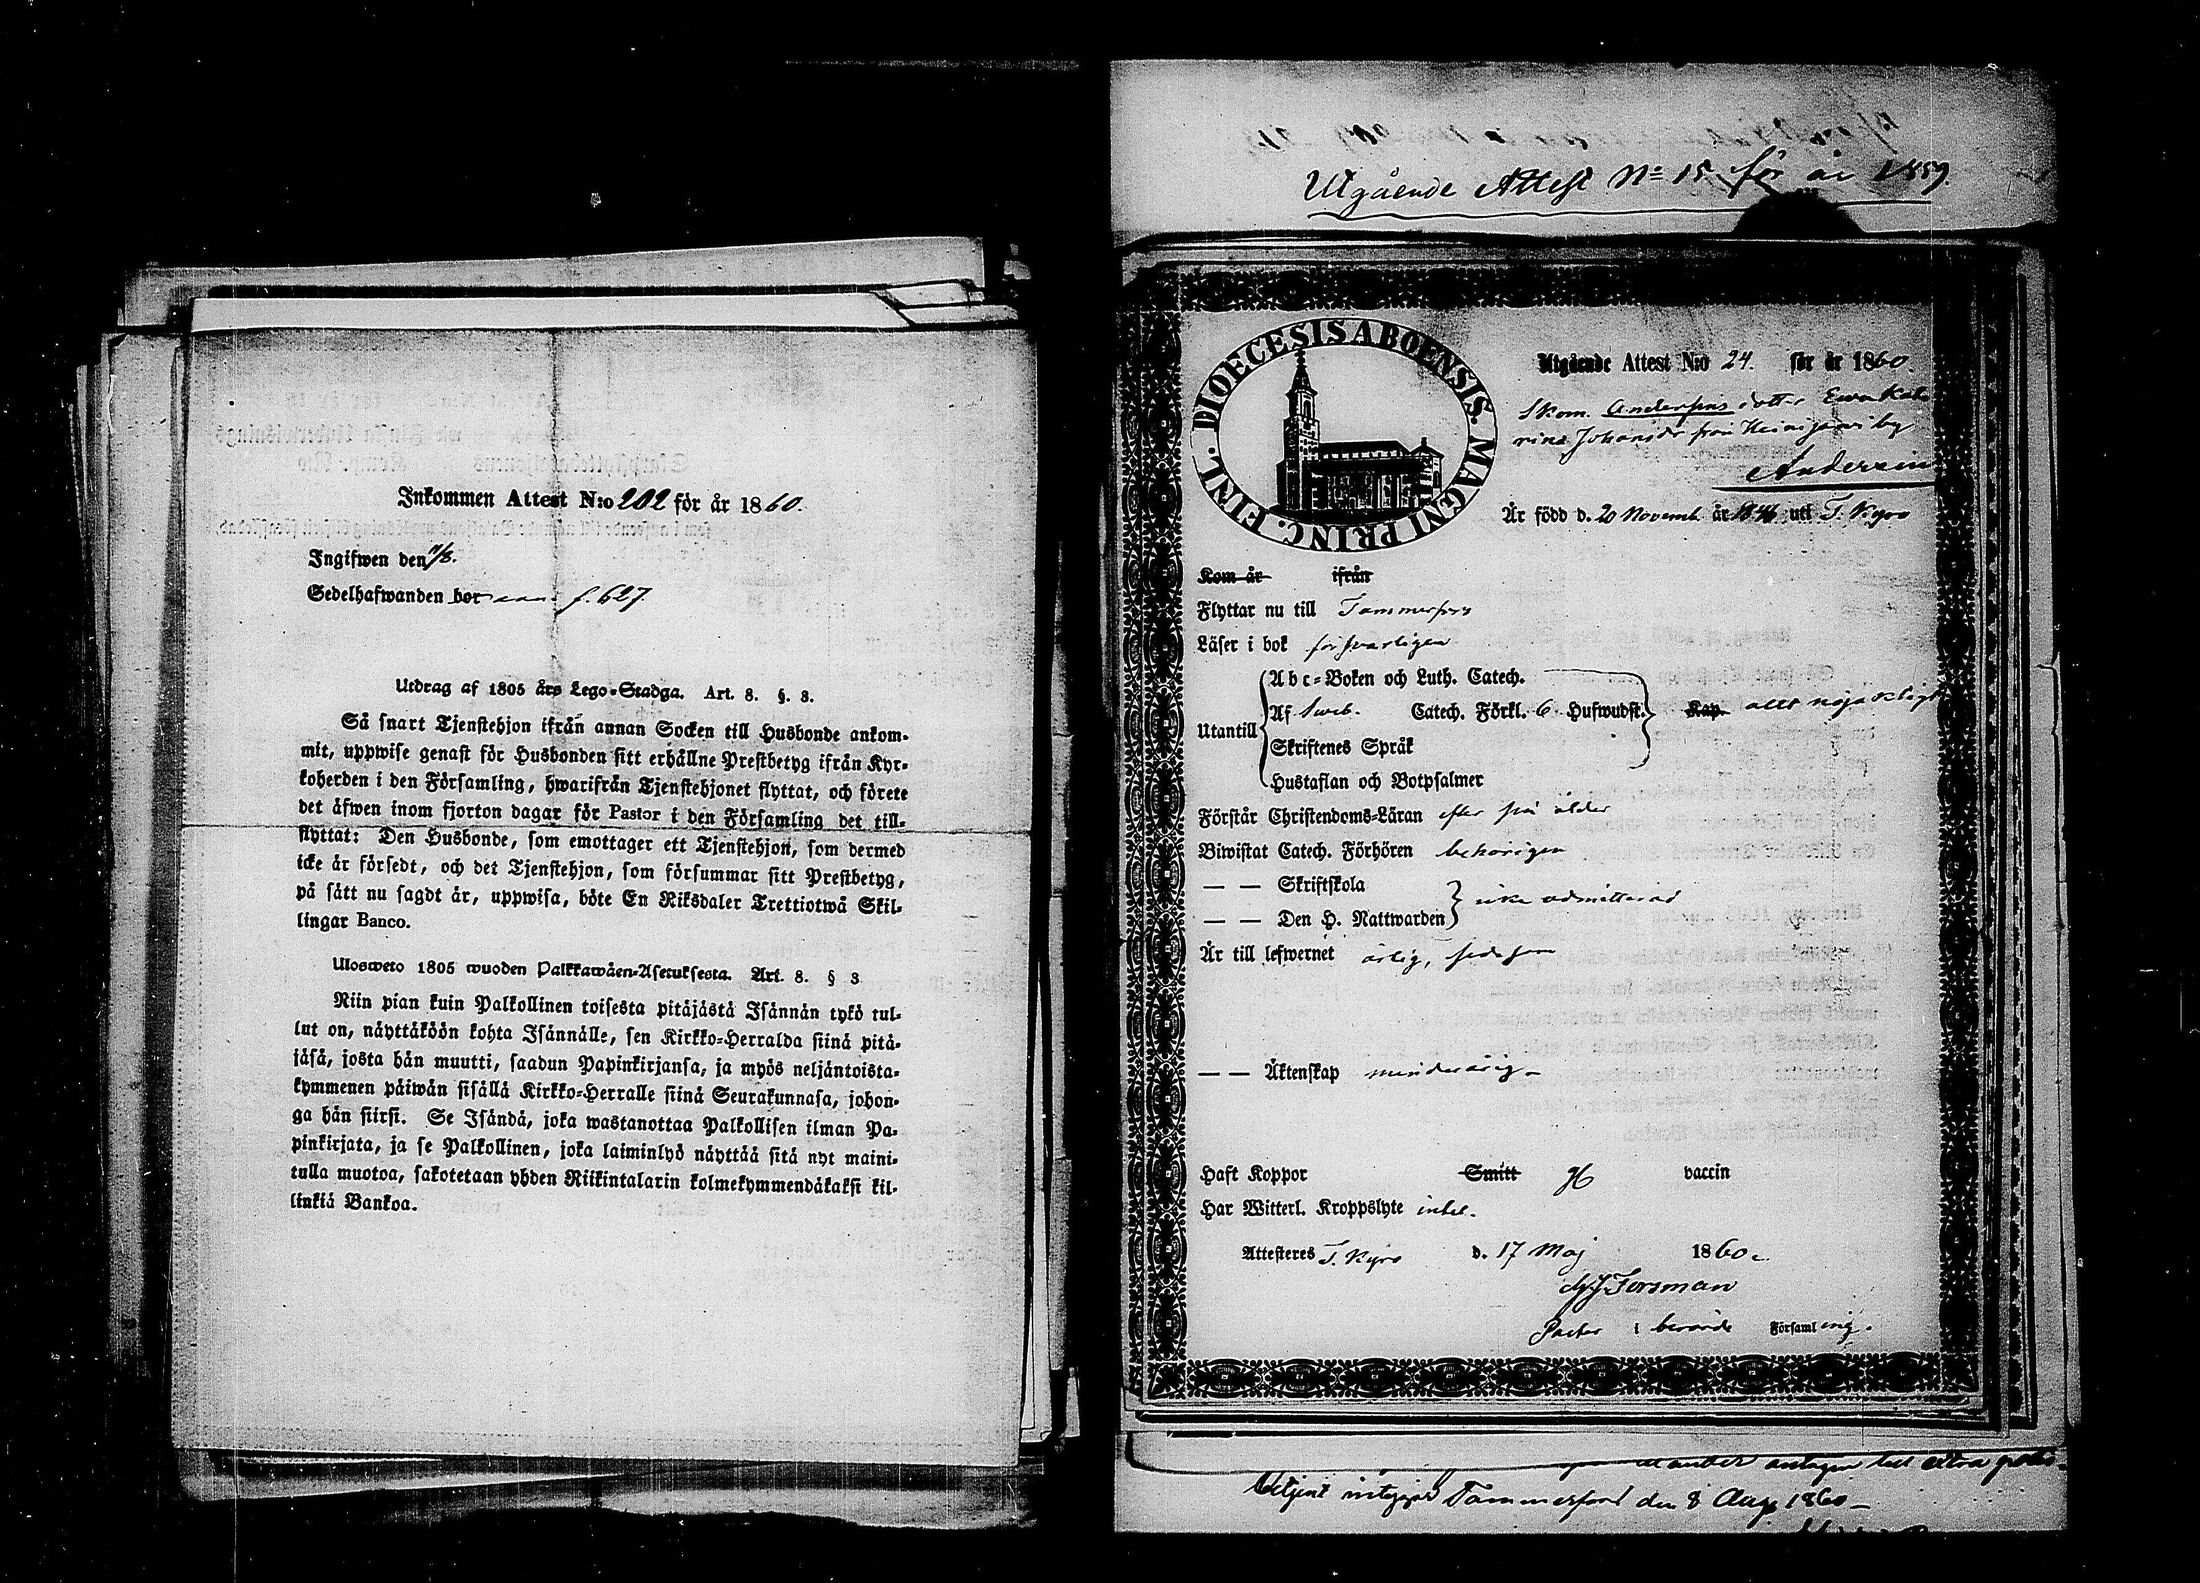 Inkommen Attest N:o 202 för år 1860.
Ingifwen den 11/8.
Sedelhafwanden bor f. 627.
Utdrag af 1805 års Lego-Stadga. Art. 8. §. 3.
Så snart Tjenstehjon ifrån annan Socken till Husbonde ankom-
mit, uppwise genast för Husbonden sitt erhållne Prestbetyg ifrån Kyr-
koherden i den Församling, hwarifrån Tjenstehjonet flyttat, och förete
det äfwen inom fjorton dagar för Pastor i den Församling det till-
flyttat: Den Husbonde, som emottager ett Tjenstehjon, som dermed
icke är försedt, och det Tjenstehjon, som försummar sitt Prestbetyg,
på sätt nu sagdt är, uppwisa, böte En Riksdaler Trettiotwå Skil-
lingar Banco.
Ulosweto 1805 wuoden Palkkawäen-Asetuksesta. Art. 8. § 3
Niin pian kuin Palkollinen toisesta pitäjästä Isännän tykö tul-
lut on, näyttäköön kohta Isännälle, sen Kirkko-Herralda siinä pitä-
jäsä, josta hän muutti, saadun Papinkirjansa, ja myös neljäntoista-
kymmenen päiwän sisällä Kirkko-Herralle siinä Seurakunnasa, johon-
ga hän siirsi. Se Isändä, joka wastanottaa Palkollisen ilman Pa-
pinkirjata, ja se Palkollinen, joka laiminlyö näyttää sitä nyt maini-
tulla muotoa, sakotetaan yhden Riikintalarin kolmekymmendäkaksi kil-
linkiä Bankoa.
Utgående Attest No 15 för år 1859.
DIOECESIS ABOENSIS. MAGNI PRINC. FINL.
Utgående Attest N:o 24. för år 1860.
Skom. Anderssins dotter Ewa Kata
rina Johansdr från Heinijärvi by
Anderssin
Är född d. 20 Novemb. år 1846 uti T. Kyro
Kom år ifrån
Flyttar nu till Tammerfors
Läser i bok försvarligen
Utantill
Abc-Boken och Luth. Catech.
Af Sweb. Catech. Förkl. 6 Hufwudst. Kap. allt nöjaktigt
Skriftenes Språk
Hustaflan och Botpsalmer
Förstår Christendoms-Läran efter sin ålder
Biwistat Catech. Förhören behörigen
— — Skriftskola
— — Den H. Nattwarden icke admitterad
Är till lefwernet ärlig, sedesam
— — Äktenskap minderårig
Haft Koppor Smitt H vaccin
Har Witterl. Kroppslyte intet.
Attesteres T. Kyro d. 17 Maj 1860.
Forsman
Pastor i berörde Församling.
antagen till
Tammerfors den 8 Aug. 1860